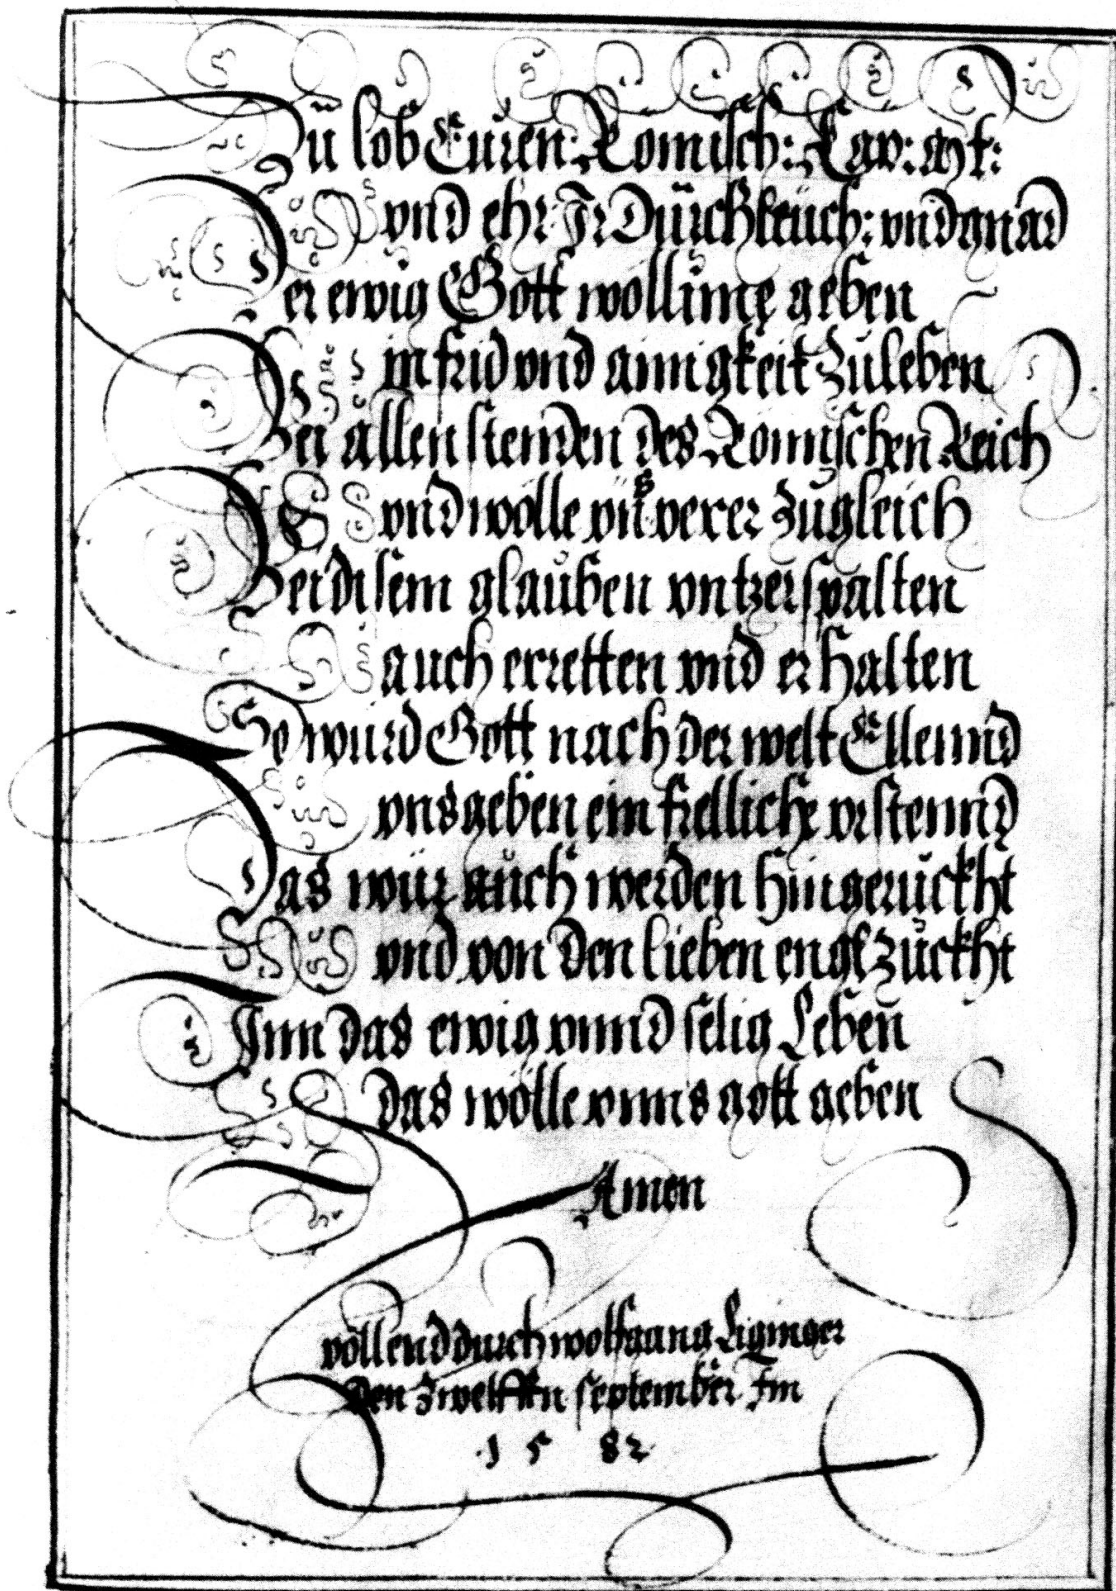 Zu lob Euren: Romisch: Kay: Mt:
vnd ehr Ir Dürchleüch: vnd gnad
Der ewig Gott woll ime geben
in frid vnd ainigkeit zu leben
Bei allen stenden des Romischen Reich
vnd wölle vnß verer zugleich
Bei disem glauben vntzerspalten
auch erretten vnd erhalten
So wurd Gott nach der welt Ellennd
vns geben ein frelliche vrstennd
Das wür auch werden hingeruckht
vnd von den lieben engl zuckht
Inn das ewig vnnd selig Leben
das wölle vnns gott geben
Amen
vollend durch wolfgang
den zwelfften september Im
1582